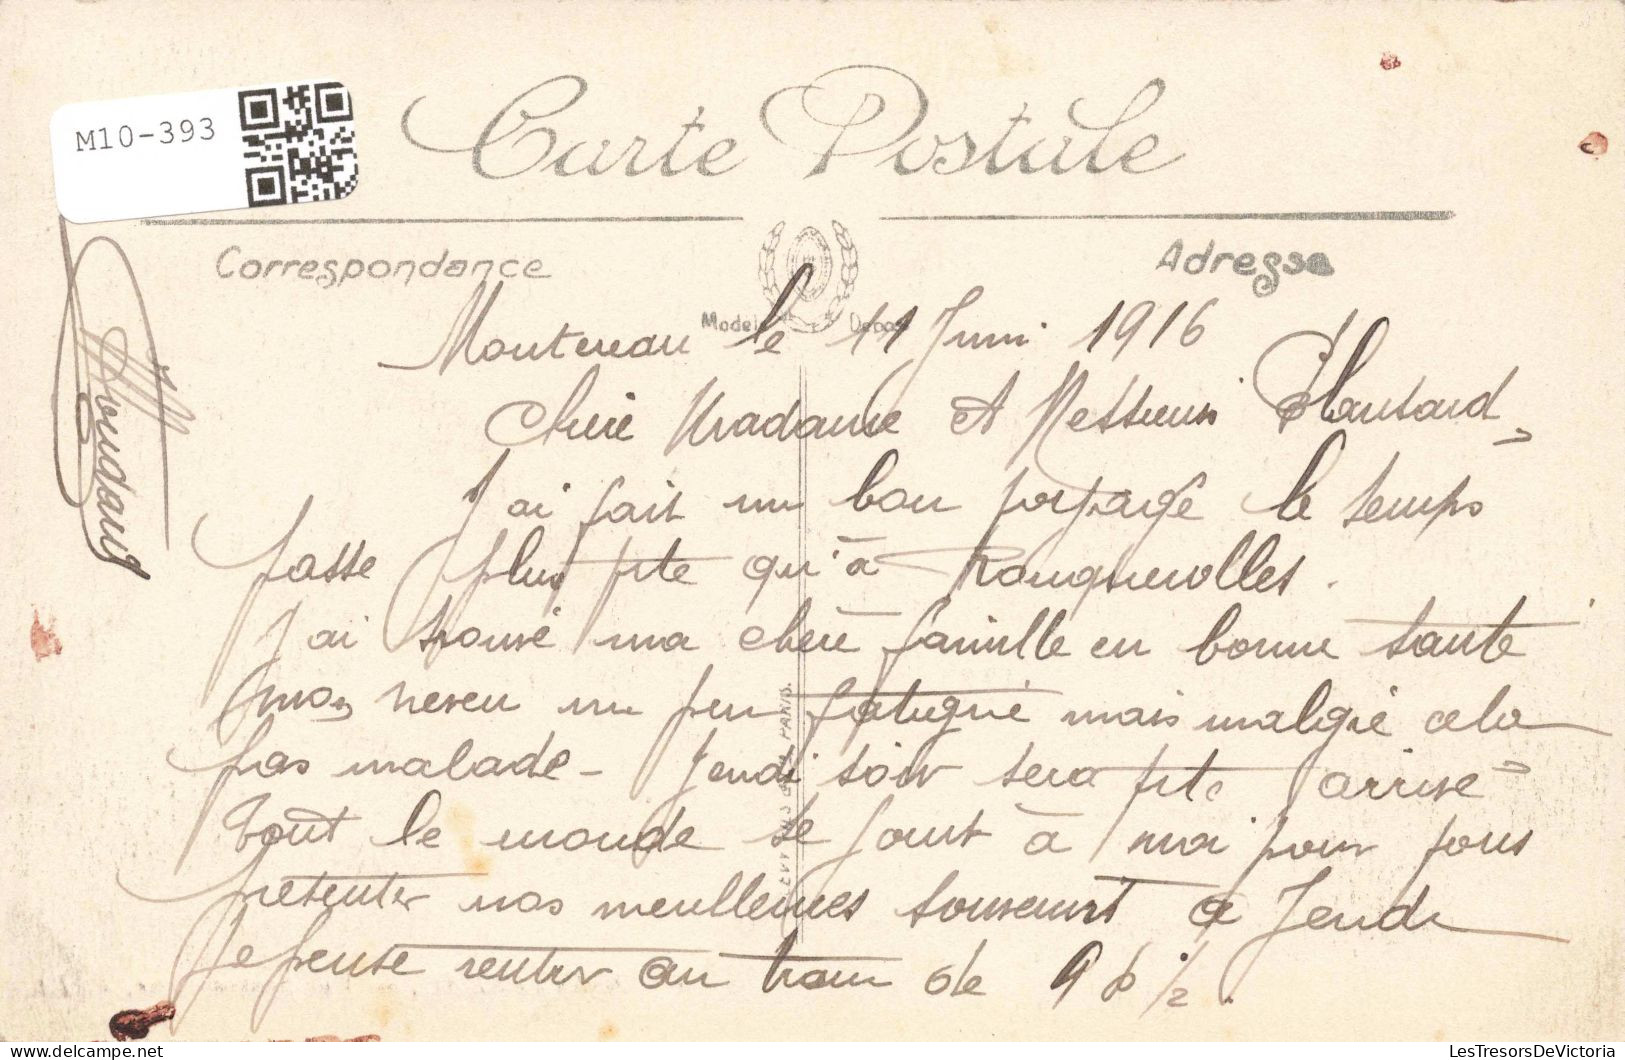 M10-393
Carte Postale
Correspondance
Adresse
Modele Deposé
Montereau le 11 Juin 1916
Chère Madame et Messieurs
J'ai fait un bon voyage le temps
passe plus vite qu'à Rouquerolles.
J'ai trouvé ma chère famille en bonne santé
mon neveu un peu fatigué mais malgré cela
pas malade - Jeudi soir sera vite arrivé
Tout le monde se joint à moi pour vous
présenter nos meilleures souvenirs à Jeudi
Je pense rentrer au train de 9 h 1/2.
PARIS.
LesTresorsDeVictoria
www.delcampe.net